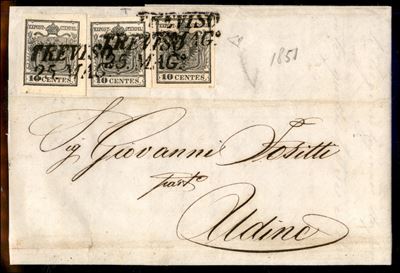 TREVISO
TREVISO TREVISO MAG.º
25. MAG.º 25. MAG.º
10 CENTES. 10 CENTES. 10 CENTES.
1851
Sig Giovanni
Udine